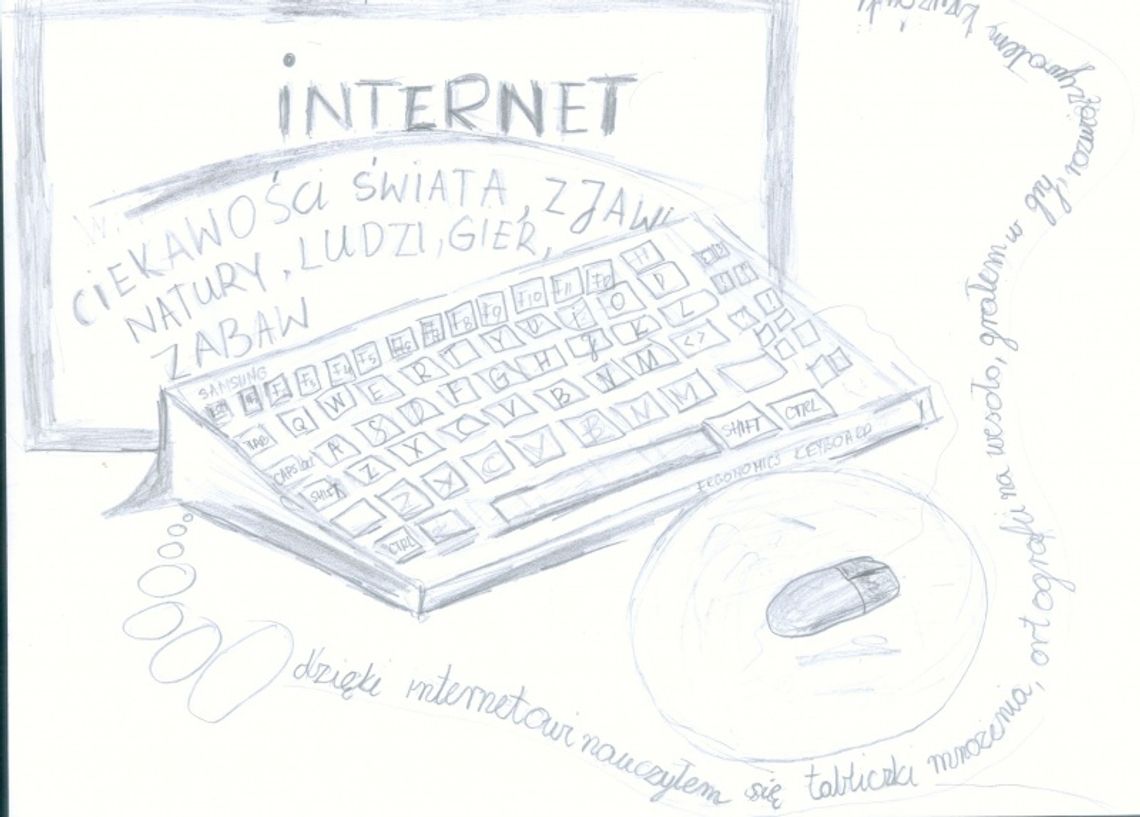 INTERNET
CIEKAWOŚCI ŚWIATA, ZJAWI
NATURY, LUDZI, GIER,
ZABAW
SAMSUNG
F3 F4 F5 F8 F9 F10 F11
TAB Q W E R T Y O
CAPS A S D F G H K L
SHIFT Z X C V B N M < >
Z X C V B N M SHIFT CTRL
CTRL
ERGONOMICS KEYBOARD
dzięki internetowi nauczyłem się tabliczki mnożenia, ortografii na wesoło, grałem w gry, rozwiązywałem